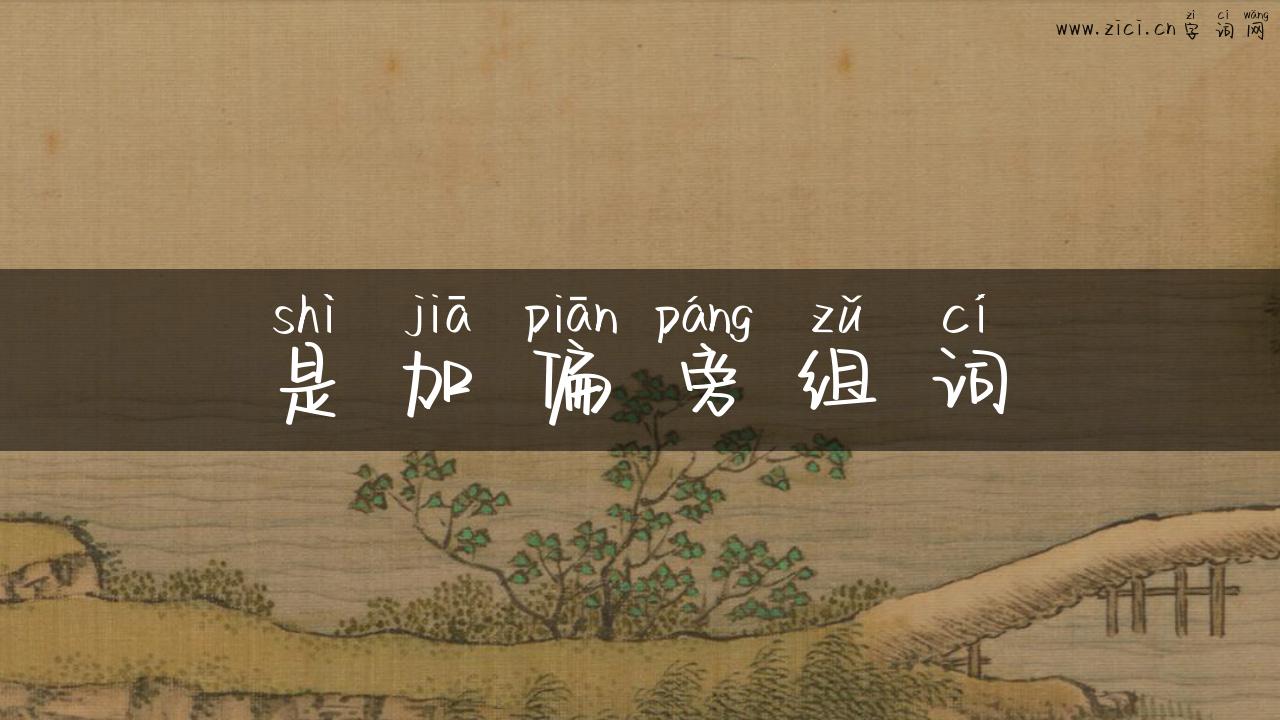 zì cí wǎng
www.zici.cn字词网
shì jiā piān páng zǔ cí
是加偏旁组词